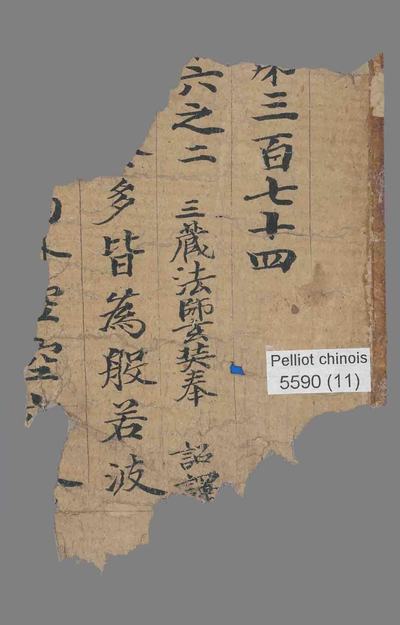 第三百七十四
六之二 三藏法師玄奘奉 詔譯
多皆為般若波
Pelliot chinois
5590 (11)